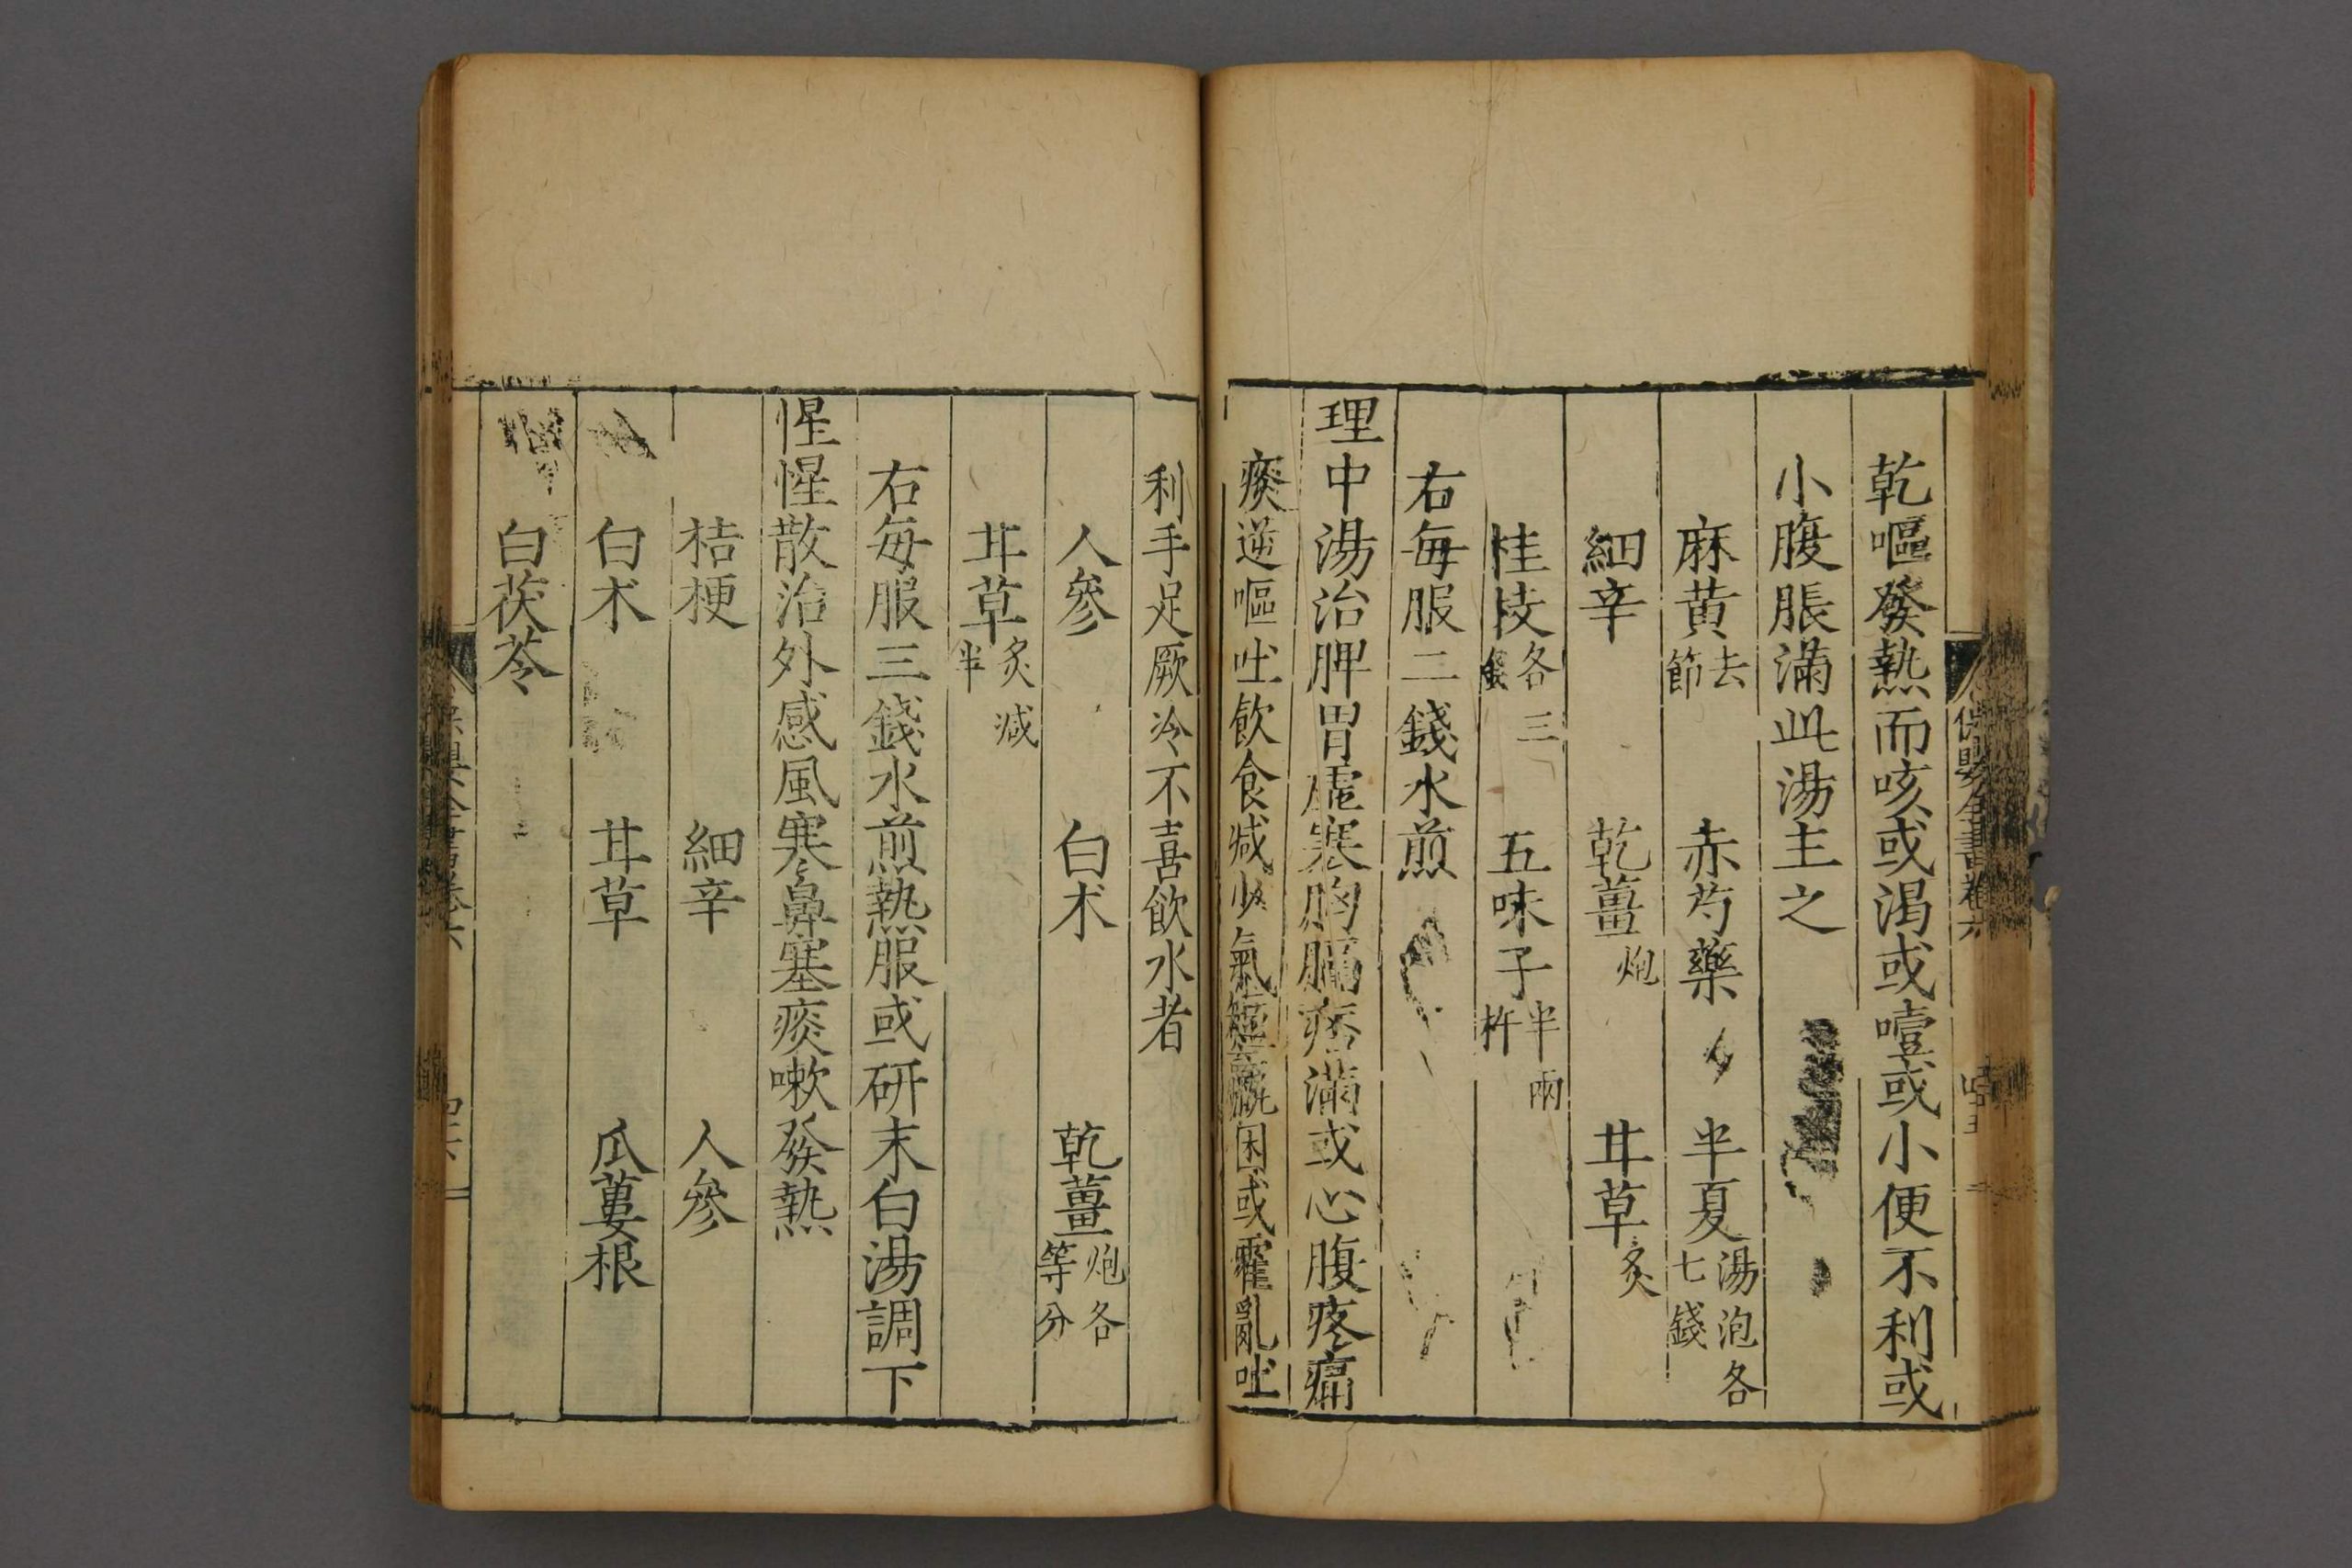 乾嘔發熱而咳或渴或噎或小便不利或
小腹脹滿此湯主之
麻黃去節 赤芍藥 半夏湯泡各七錢
細辛 乾薑炮 甘草炙
桂枝各三錢 五味子半兩杵
右每服二錢水煎
理中湯治脾胃虛寒胸膈痞滿或心腹疼痛
痰逆嘔吐飲食减少氣短羸困或霍亂吐
利手足厥冷不喜飲水者
人參 白朮 乾薑炮各等分
甘草炙减半
右每服三錢水煎熱服或研末白湯調下
惺惺散治外感風寒鼻塞痰嗽發熱
桔梗 細辛 人參
白朮 甘草 瓜蔞根
白茯苓
保嬰全書卷六